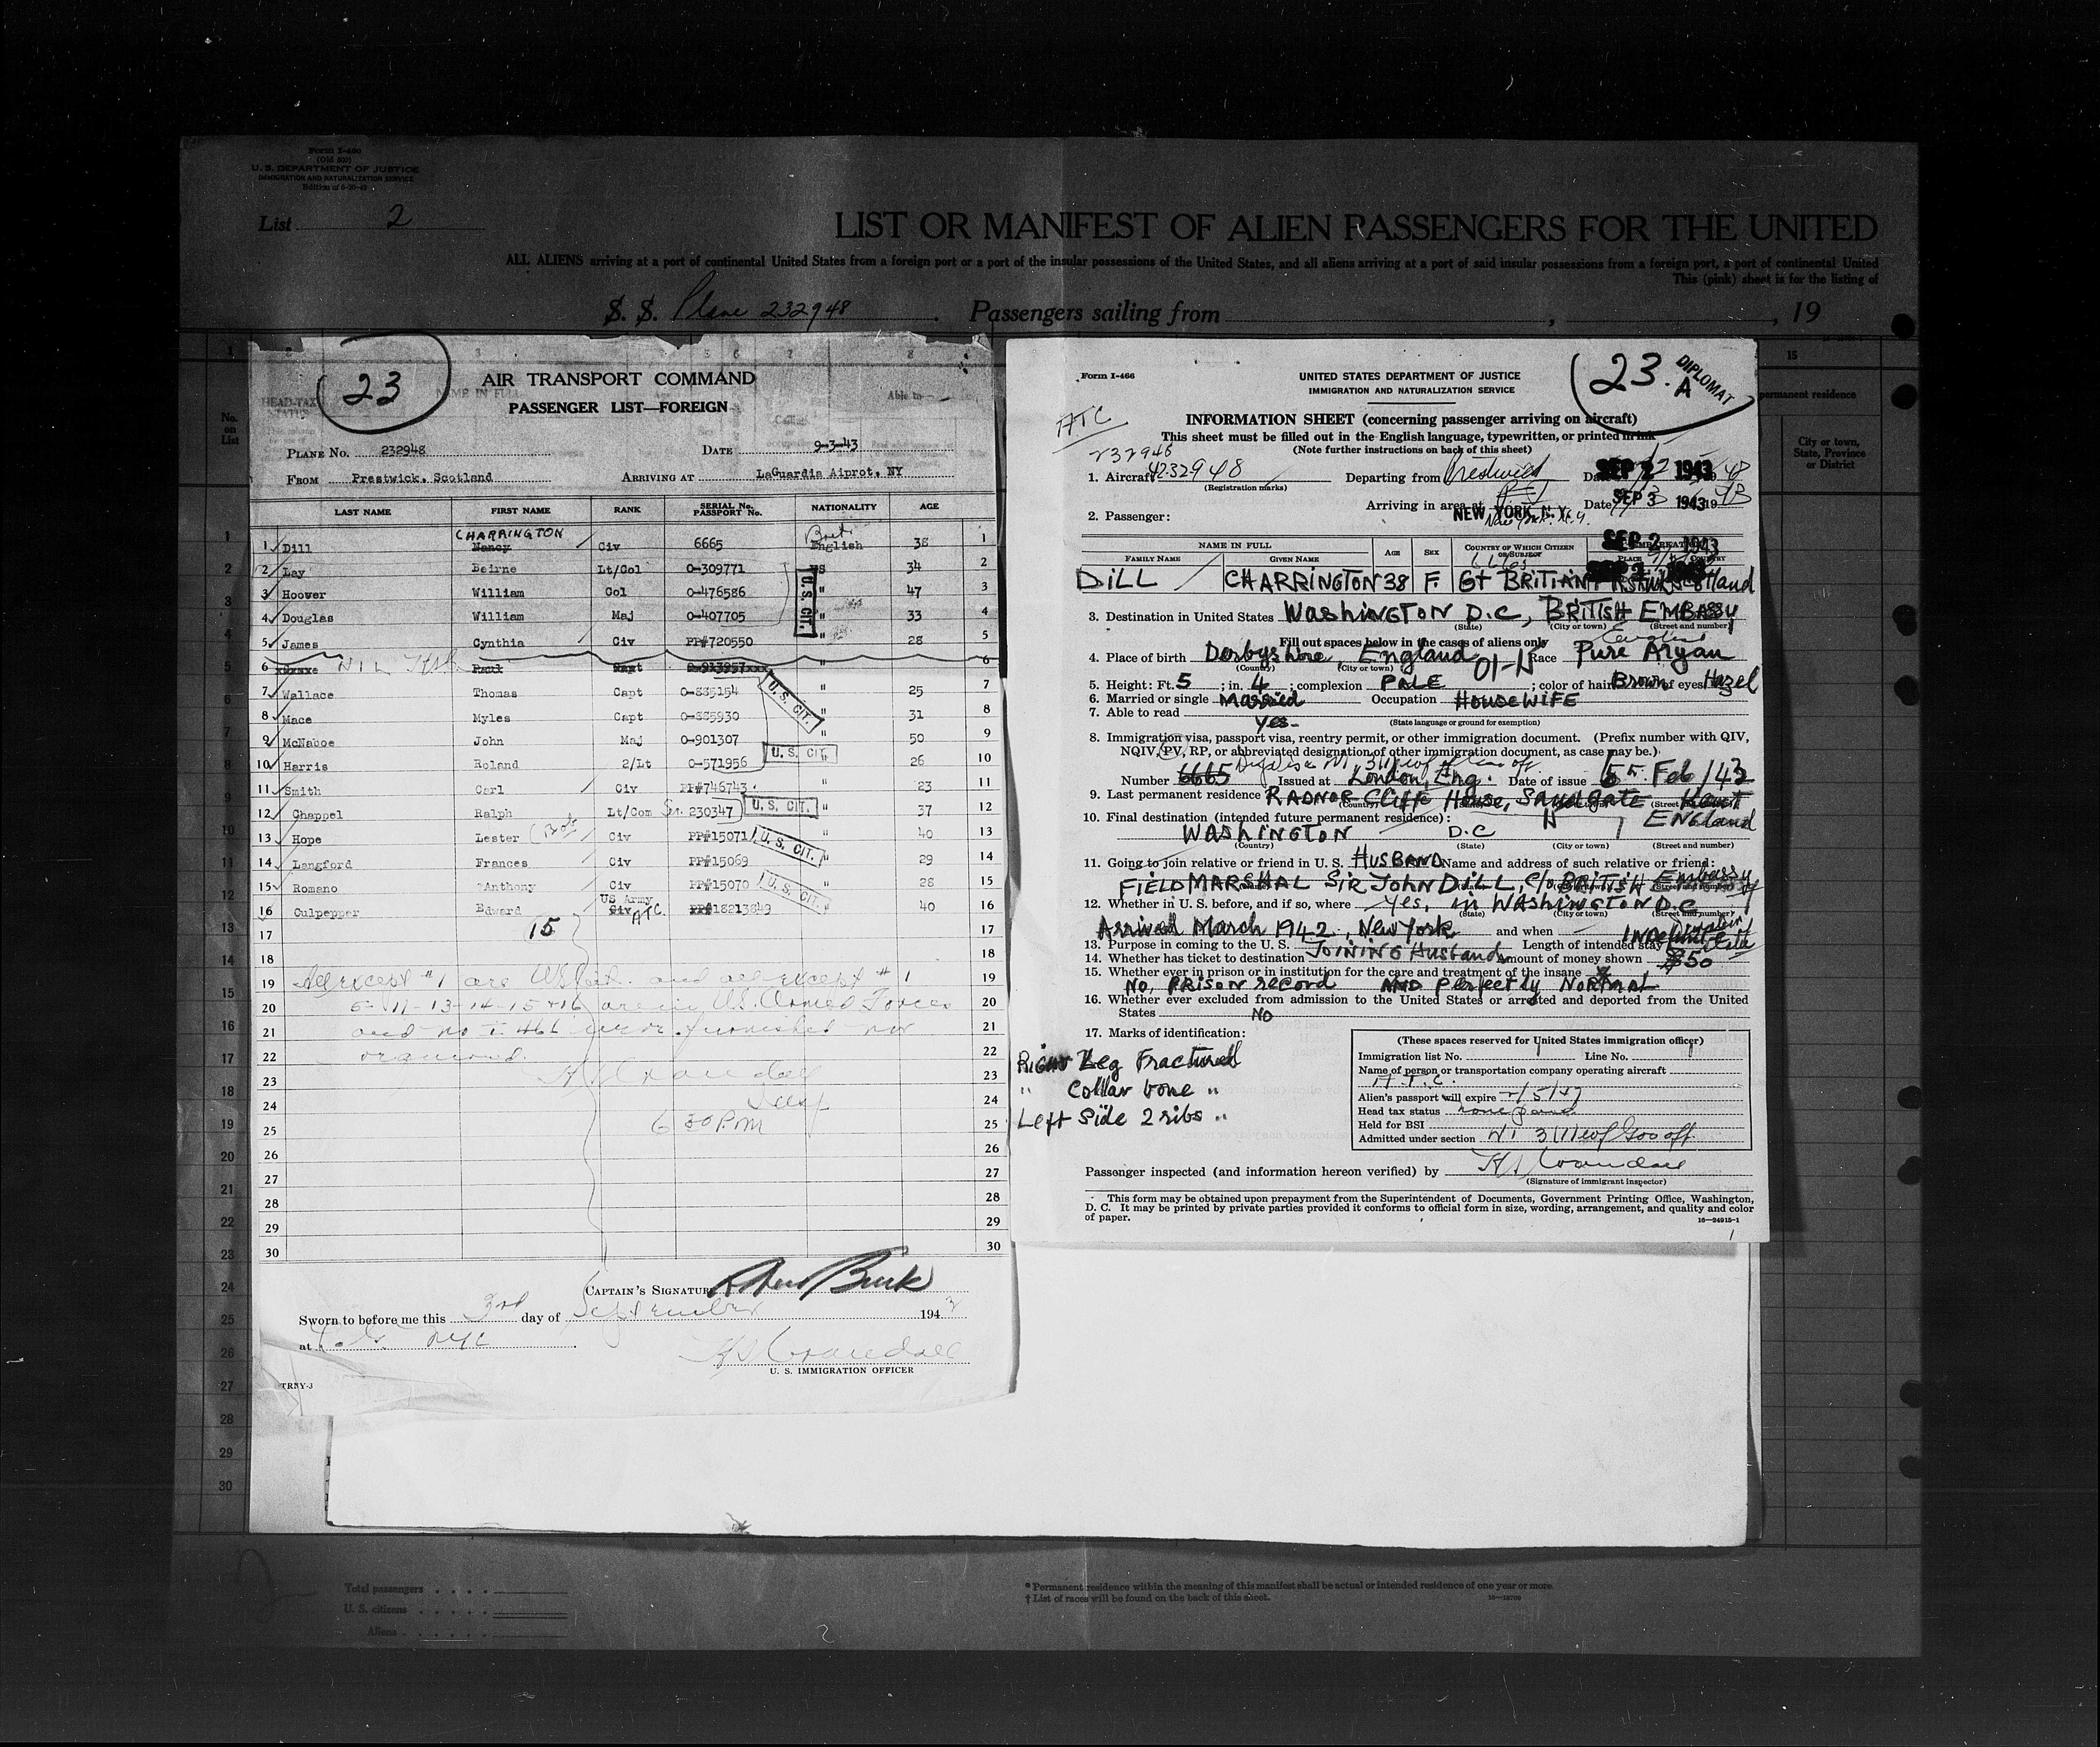 Form I-460
(Old 500)
U. S. DEPARTMENT OF JUSTICE
IMMIGRATION AND NATURALIZATION SERVICE
List 2
LIST OR MANIFEST OF ALIEN PASSENGERS FOR THE UNITED
ALL ALIENS arriving at a port of continental United States from a foreign port or a port of the insular possessions of the United States, and all aliens arriving at a port of said insular possessions from a foreign port, a port of continental United
This (pink) sheet is for the listing of
S. S. Plane 232948. Passengers sailing from , , 19
23
AIR TRANSPORT COMMAND
PASSENGER LIST—FOREIGN
PLANE No. 232948 DATE 9-3-43
FROM Prestwick, Scotland ARRIVING AT LaGuardia Aiprot, NY
LAST NAME FIRST NAME RANK SERIAL No. PASSPORT No. NATIONALITY AGE
CHARRINGTON Brit
1 Dill Nancy Civ 6665 English 38 1
2 Lay Beirne Lt/Col O-309771 US 34 2
3 Hoover William Col O-476586 " 47 3
4 Douglas William Maj O-407705 " 33 4
U. S. CIT.
5 James Cynthia Civ PP#720550 " 28 5
6 Paul Capt O-913957xxx " 6
7 Wallace Thomas Capt O-885154 " 25 7
U. S. CIT.
8 Mace Myles Capt O-885930 " 31 8
9 McNaboe John Maj O-901307 " 50 9
10 Harris Roland 2/Lt O-571956 U. S. CIT. " 26 10
11 Smith Carl Civ PP#746743 " 23 11
12 Chappel Ralph Lt/Com 230347 U. S. CIT. " 37 12
13 Hope Lester (Bob Civ PP#15071 U. S. CIT. " 40 13
14 Langford Frances Civ PP#15069 " 29 14
15 Romano Anthony Civ PP#15070 U. S. CIT. " 28 15
16 Culpepper Edward Civ US Army ATC PP#18213849 " 40 16
17 15 17
18 18
19 All except #1 are US Cit. and all except #1 19
20 5-11-13-14-15 & 16 are in U.S. Armed Forces 20
21 and no I-466 were furnished nor 21
22 22
23 H S Crandall 23
24 24
25 6 30 P.M 25
26 26
27 27
28 28
29 29
30 30
CAPTAIN'S SIGNATURE
Sworn to before me this 3rd day of September 1943
at L. G. NYC H S Crandall
U. S. IMMIGRATION OFFICER
TRNY-3
Form I-466
UNITED STATES DEPARTMENT OF JUSTICE
IMMIGRATION AND NATURALIZATION SERVICE
23.A DIPLOMAT
ATC
INFORMATION SHEET (concerning passenger arriving on aircraft)
This sheet must be filled out in the English language, typewritten, or printed in ink
(Note further instructions on back of this sheet)
232948
1. Aircraft 4232948 Departing from Prestwick Date SEP 2 1943
(Registration marks)
Arriving in area at NEW YORK, N. Y. Date SEP 3 1943
New York. N.Y.
2. Passenger:
SEP 2 1943
NAME IN FULL AGE SEX COUNTRY OF WHICH CITIZEN OR SUBJECT
FAMILY NAME GIVEN NAME PLACE COUNTRY
DILL CHARRINGTON 38 F. Gt BRITIAN
3. Destination in United States WASHINGTON D.C, BRITISH EMBASSY
(State) (City or town) (Street and number)
Fill out spaces below in the cases of aliens only
4. Place of birth Derbyshire, England Race Pure Aryan
(Country) (City or town)
5. Height: Ft. 5 ; in. 4 ; complexion PALE ; color of hair Brown of eyes Hazel
6. Married or single Married Occupation HOUSEWIFE
7. Able to read Yes-
(State language or ground for exemption)
8. Immigration visa, passport visa, reentry permit, or other immigration document. (Prefix number with QIV,
NQIV, PV, RP, or abbreviated designation of other immigration document, as case may be.)
Number 6665 Issued at London, Eng. Date of issue 5th Feb /43
9. Last permanent residence RADNOR CLIFFE House, SANDGATE Kent
10. Final destination (intended future permanent residence): ENGLAND
WASHINGTON D.C
(Country) (State) (City or town) (Street and number)
11. Going to join relative or friend in U. S. HUSBAND Name and address of such relative or friend:
FIELD MARSHAL SIR JOHN DILL, C/o BRITISH Embassy
12. Whether in U. S. before, and if so, where Yes, in WASHINGTON D.C
(State) (City or town) (Street and number)
Arrived March 1942, New York and when
13. Purpose in coming to the U. S. JOINING HUSBAND Length of intended stay INDEFINITE
14. Whether has ticket to destination Amount of money shown $50
15. Whether ever in prison or in institution for the care and treatment of the insane
No, PRISON record AND Perfectly NORMAL
16. Whether ever excluded from admission to the United States or arrested and deported from the United
States No
17. Marks of identification:
RIGHT Leg Fractured
" Collar bone "
Left Side 2 ribs "
(These spaces reserved for United States immigration officer)
Immigration list No. Line No.
Name of person or transportation company operating aircraft
A.T.C.
Alien's passport will expire 2/5/47
Head tax status none
Held for BSI
Admitted under section 3(1) wf Gov off.
Passenger inspected (and information hereon verified) by H S Crandall
(Signature of immigrant inspector)
This form may be obtained upon prepayment from the Superintendent of Documents, Government Printing Office, Washington,
D. C. It may be printed by private parties provided it conforms to official form in size, wording, arrangement, and quality and color
of paper. 16—24915-1
15
permanent residence
City or town, State, Province or District
No. on List
Total passengers
U. S. citizens
Aliens
* Permanent residence within the meaning of this manifest shall be actual or intended residence of one year or more.
† List of races will be found on the back of this sheet.
2